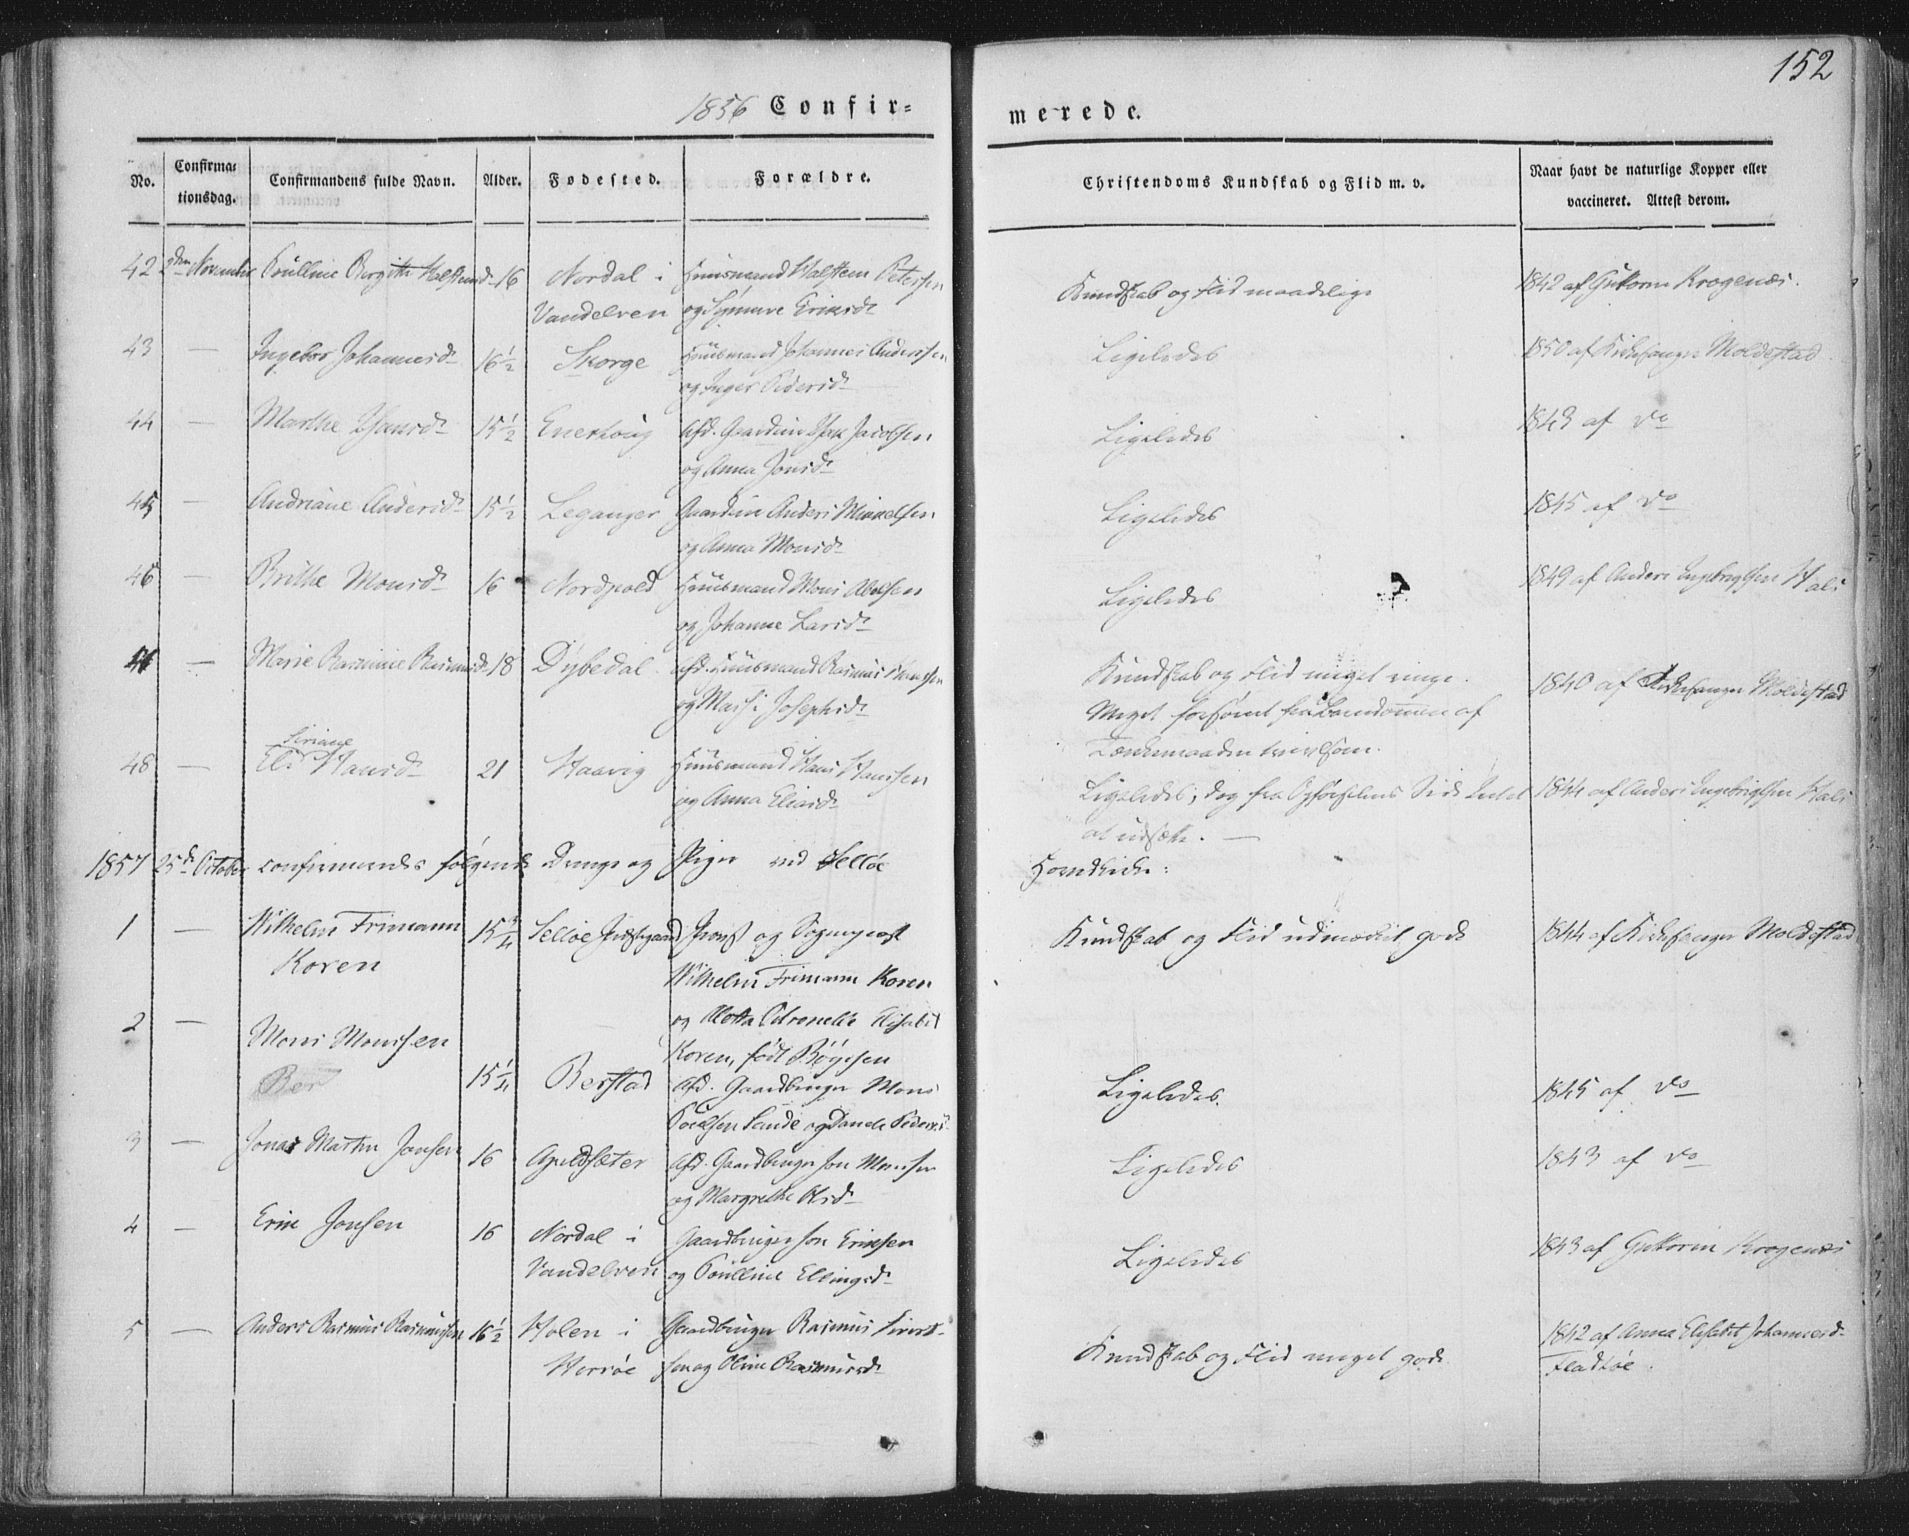 152
1856 Confir=
merede.
No.
Confirma=
tionsdag.
Confirmandens fulde Navn.
Alder.
Fødested.
Forældre.
Christendoms Kundskab og Flid m. v.
Naar havt de naturlige Kopper eller
vaccineret. Attest derom.
42 2den November Poulline Birgitte Halstensd. 16 Nordal i Huusmand Halsten Petersen
Vandelven og Synneve Ericsd.
Kundskab og Flid maadelige
1842 af Guttorm Krogenæs.
43 — Ingebor Johannesd. 16½ Skorge Huusmand Johannes Anderssen
og Inger Pedersd.
Ligeledes
1850 af Kirkesanger Moldestad
44 — Marthe 15½ afd. Gaardm. Jacobsen
og Anna Jonsd.
Ligeledes
1843 af do
45 — Andriane Andersd. 15½ Leganger Gaardm. Anders Mikkelsen
og Anna Monsd.
Ligeledes
1845 af do
46 — Brithe Monsd. 16 Nordpold Huusmand Mons Abelsen
og Johanne Larsd.
Ligeledes
1849 af Anders Ingebrigtsen Hals
— Marie Rasmine Rasmusd. 18 Dybedal afd. Huusmand Rasmus Hanssen
og Josephsd.
Kundskab og Flid meget ringe.
Meget forsømt fra Barndommen af
1840 af Kirkesanger Moldestad
Siriane
48 — Eli Hansd. 21 Haavig Huusmand Hans Hanssen
og Anna Eliasd.
Ligeledes, dog fra Opførselens Side Intet
at udsætte. —
1844 af Anders Ingebrigtsen Hals
1857 25de October confirmeredes følgende Drenge og Piger ved Selløe
Hovedkirke:
1 — Wilhelm Frimann 15¾ Selløe Præstegaard Provst og Sognepræst
Koren Wilhelm Frimann Koren
og Petronelle Elisabet
Koren, født Bøgesen
Kundskab og Flid udmærket gode
1844 af Kirkesanger Moldestad
2 — Mons Monssen 15¼ Berstad afd. Gaardbruger Mons
Ber
Sande og Pedersd.
Ligeledes.
1845 af do
3 — Jonas Martin Jonsen 16 Apeldsæter afd. Gaardbruger Jon Monssen
og Margrethe Olsd.
Ligeledes
1843 af do
4 — Eric Jonsen 16 Nordal i Gaardbruger Jon Ericsen
Vandelven og Poulline Ellingsd.
Ligeledes
1843 af Guttorm Krogenæs
5 — Anders Rasmus Rasmussen 16½ Holen i Gaardbruger Rasmus Sivert-
sen og Oline Rasmusd.
Kundskab og Flid meget gode
1842 af Anna Elisabet Johannesd.